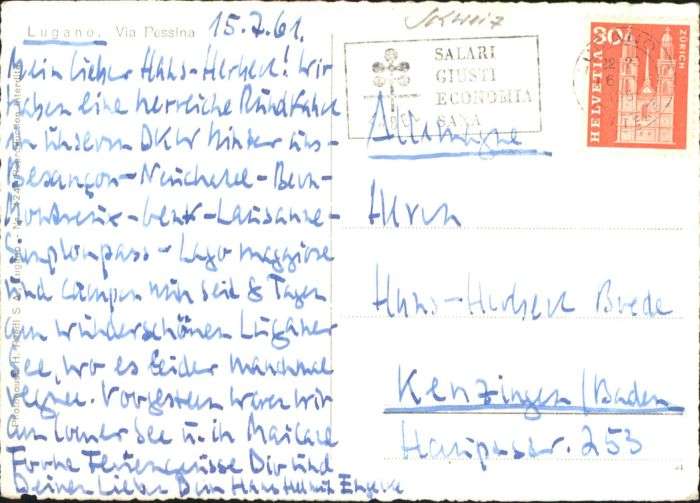 Lugano, Via Pessina
15.7.61.
Mein lieber Hans-Herbert! Wir
haben eine herrliche Rundfahrt
in unserem DKW hinter uns-
Besançon-Neuchatel-Bern-
Montreux-Genf-Lausanne-
Simplonpass-Lago maggiore
und campen nun seit 8 Tagen
am wunderschönen Luganer
See, wo es leider manchmal
regnet. Vorgestern waren wir
am Comer See u. in Mailand
Frohe Feriengrüsse Dir und
Deinen Lieben Dein Hans Helmut
Schweiz
SALARI
GIUSTI
ECONOMIA
SANA
HELVETIA
30
ZÜRICH
Allemagne
Herrn
Hans-Herbert Brede
Kenzingen/Baden
Hauptstr. 253